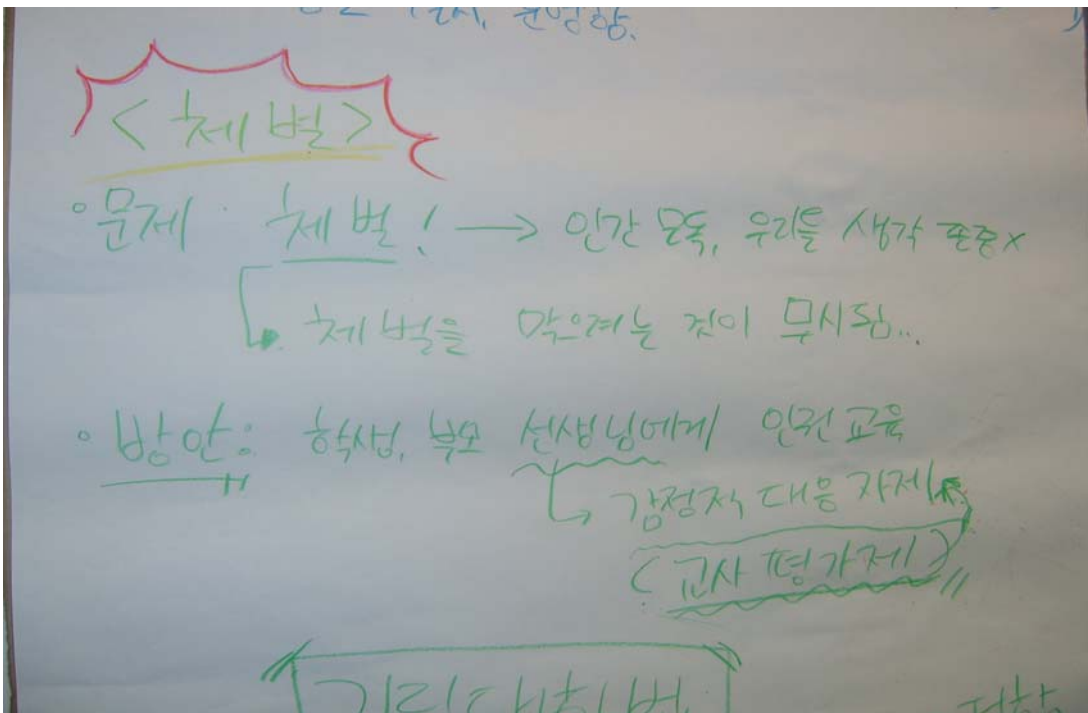 <체벌>
◦문제 · 체벌! → 인간 모독, 우리를 생각 존중x
체벌을 막으려는 것이 무시됨..
◦방안: 학생, 부모 선생님에게 인권 교육
→ 감정적 대응 자제
(교사 평가제)